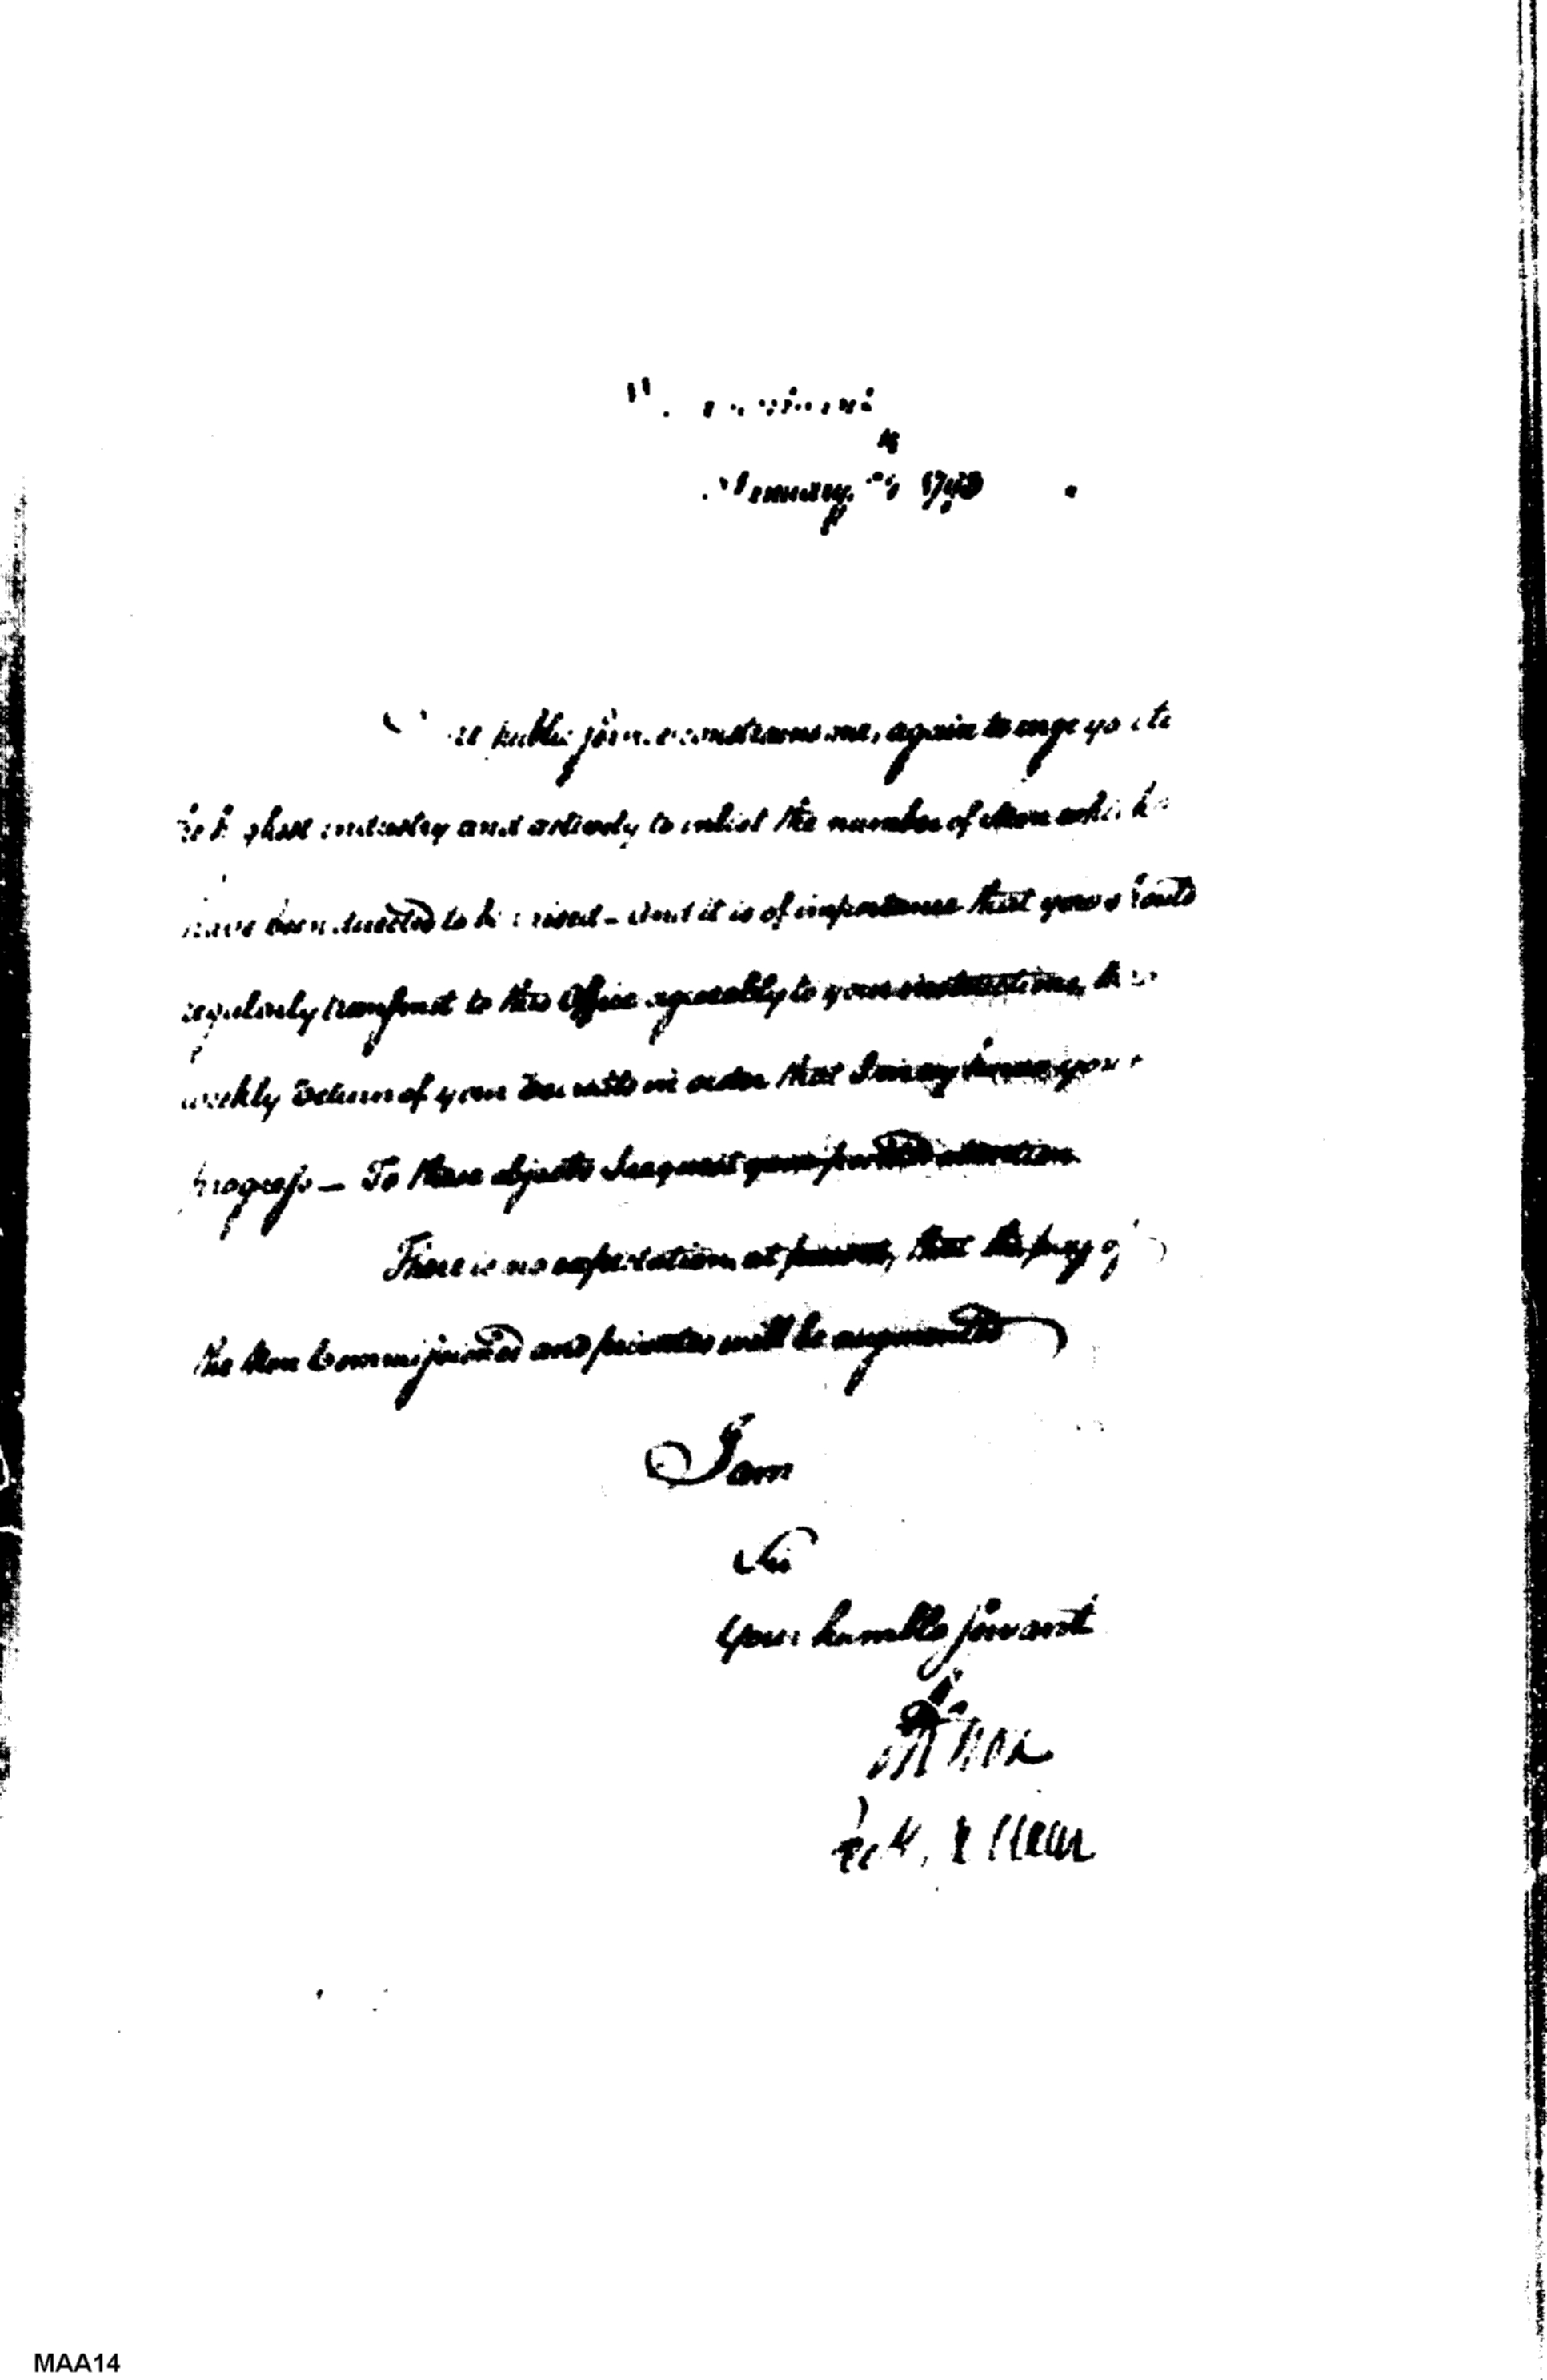 January 1793
public service constrains me, again to urge you to
industry and activity to enlist the number of Men which
have been directed to be raised - And it is of importance that you should
regularly transmit to this Office agreeably to your instructions, the
weekly return of your Recruits in order that I may know your
progress - To these objects I request your pointed attention
There is no expectation at present, that the pay of
the Non Commissioned and privates will be augmented
I am
Sir
Your humble servant
H Knox
Secy. of War
MAA14